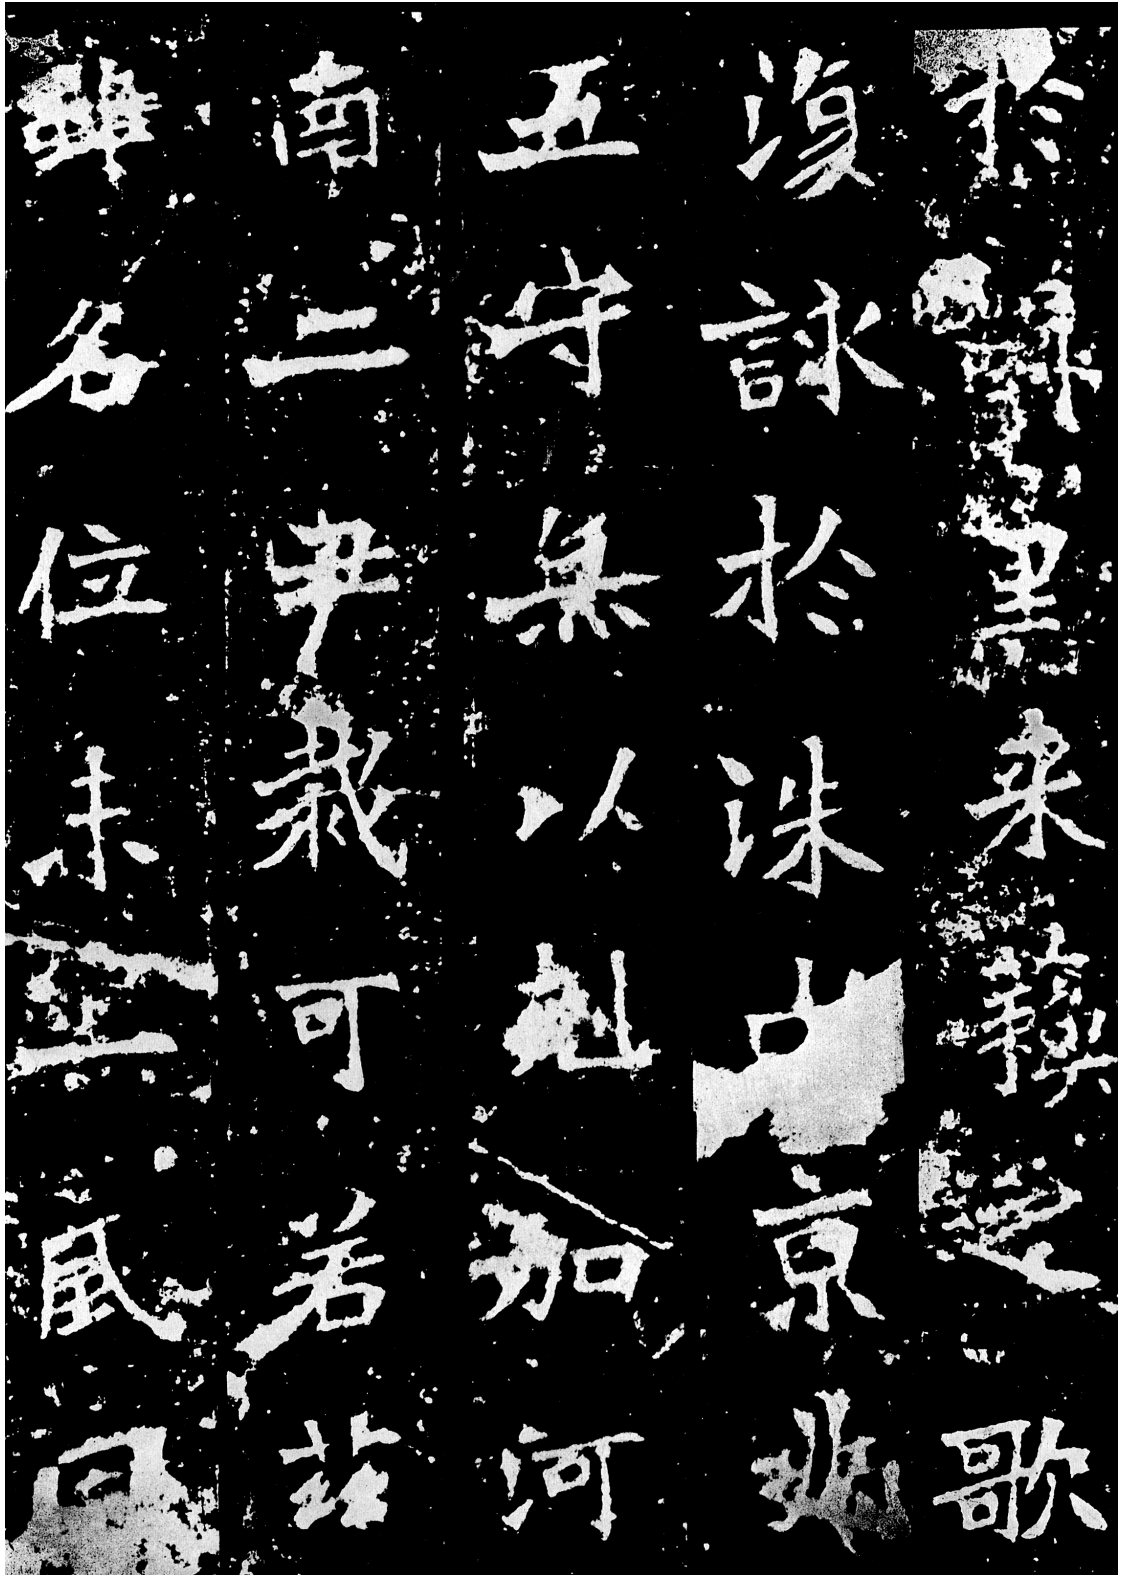 於闕里來蘇之歌
復詠於洙中京兆
五守無以克加河
南二尹裁可若茲
雖名位未風